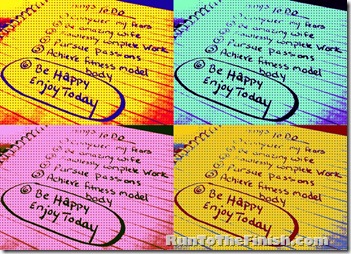 To Do
my fears
amazing wife
complete work
Pursue passions
Achieve fitness model
body
Be Happy
Enjoy Today
To Do
my fears
amazing wife
complete work
Pursue passions
Achieve fitness model
body
Be Happy
Enjoy Today
To Do
my fears
amazing wife
complete work
Pursue passions
Achieve fitness model
body
Be Happy
Enjoy Today
To Do
my fears
amazing wife
complete work
Pursue passions
Achieve fitness model
body
Be Happy
Enjoy Today
RunToTheFinish.com